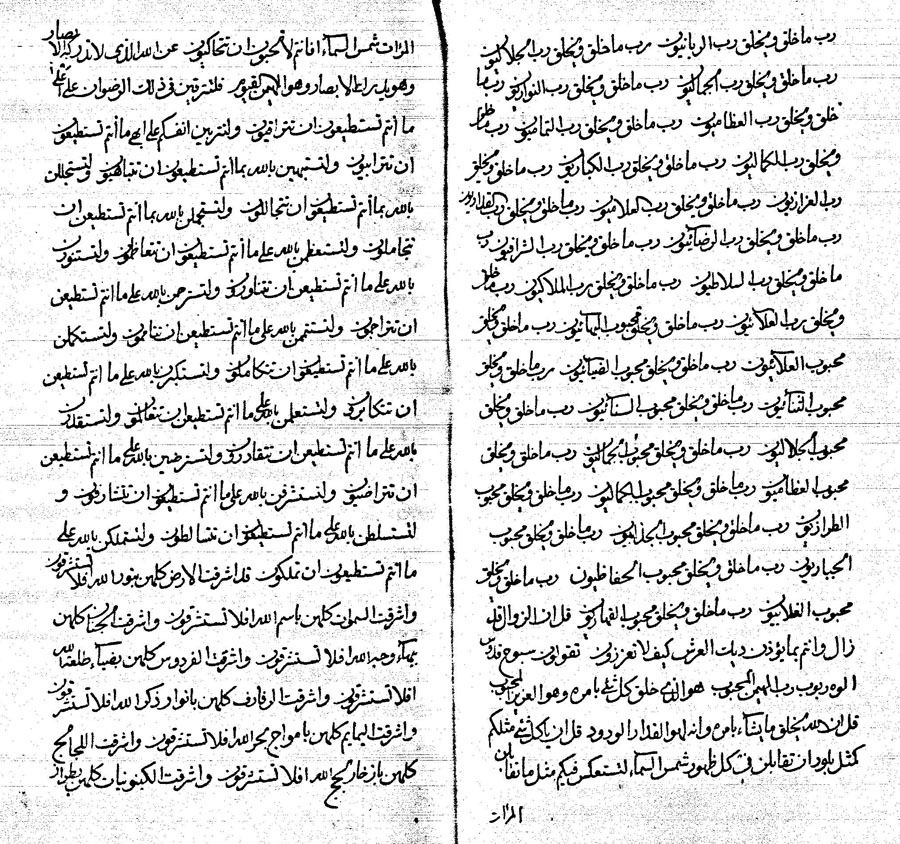 رب ما خلق ويخلق رب الربانيون رب ما خلق ويخلق رب الجلاليون
رب ما خلق ويخلق رب الجماليون رب ما خلق ويخلق رب النواريون رب ما
خلق ويخلق رب العظاميون رب ما خلق ويخلق رب التماميون رب ما خلق
ويخلق رب الكماليون رب ما خلق ويخلق رب الكباريون رب ما خلق ويخلق
رب العزازيون رب ما خلق ويخلق رب العلاميون رب ما خلق ويخلق رب القداريون
رب ما خلق ويخلق رب الرضائيون رب ما خلق ويخلق رب الشرافيون رب
ما خلق ويخلق رب السلاطيون رب ما خلق ويخلق رب الملاكيون رب ما خلق
ويخلق رب العلائيون رب ما خلق ويخلق محبوب البهائيون رب ما خلق ويخلق
محبوب العلائيون رب ما خلق ويخلق محبوب الضيائيون رب ما خلق ويخلق
محبوب الثنائيون رب ما خلق ويخلق محبوب السنائيون رب ما خلق ويخلق
محبوب الجلاليون رب ما خلق ويخلق محبوب الجماليون رب ما خلق ويخلق
محبوب العظاميون رب ما خلق ويخلق محبوب الكماليون رب ما خلق ويخلق محبوب
الطرازيون رب ما خلق ويخلق محبوب الجذابيون رب ما خلق ويخلق محبوب
الجباريون رب ما خلق ويخلق محبوب الحفاظيون رب ما خلق ويخلق
محبوب الفلاقيون رب ما خلق ويخلق محبوب القهاريون قل ان الزوال قد
زال وانتم بما يؤذن ديك العرش كيف لا تعززون تقولون سبوح قدوس
الوه ربوب رب المهيمن المحبوب هو الذي خلق كل شئ بامره وهو العزيز المحبوب
قل ان الله يخلق ما يشاء بامره وانه لهو القدار الودود قل ان يا كل شئ مثلكم
كمثل بلور ان تقابلن في كل ظهور شمس السماء لتستعكس فيكم مثل ما تقابلن
المرآت
المرآت شمس السماء افانتم لا تحبون ان تحاكيون عن الله الذي لا تدركه الابصار
وهو يدرك الابصار وهو المهيمن القيوم فلتسرقين في ذلك الرضوان على اعلى
ما انتم تستطيعون ان تتراقيون ولتربين انفسكم على ابهى ما انتم تستطيعون
ان تترابيون ولتستبهين بالله بما انتم تستطيعون ان تتباهيون ولتستجللن
بالله بما انتم تستطيعون ان تتجاللون ولتستجملن بالله بما انتم تستطيعن ان
تتجاملون ولتستعظمن بالله على ما انتم تستطيعون ان تتعاظمون ولتستنورن
بالله على ما انتم تستطيعن ان تتناورون ولتسترحمن بالله على ما انتم تستطيعن
ان تتراحمون ولتستتمن بالله على ما انتم تستطيعن ان تتاممون ولتستكملن
بالله على ما انتم تستطيعون ان تتكاملون ولتستكبرن بالله على ما انتم تستطيعن
ان تتكابرون ولتستعلمن بالله على ما انتم تستطيعن ان تتعالمون ولتستقدرن
بالله على ما انتم تستطيعن ان تتقادرون ولتسترضين بالله على ما انتم تستطيعن
ان تتراضيون ولتستشرفن بالله على ما انتم تستطيعون ان تتشارفون و
لتستسلطن بالله على ما انتم تستطيعون ان تتسالطون ولتستملكن بالله على
ما انتم تستطيعون ان تملكون قد اشرقت الارض كلهن بنور الله افلا تستشرقون
واشرقت السموات كلهن باسم الله افلا تستشرقون واشرقت الجنان كلهن
ببهاء وجه الله افلا تستشرقون واشرقت الفردوس كلهن بضياء طلعة الله
افلا تستشرقون واشرقت الرفارف كلهن بانوار ذكر الله افلا تستشرقون
واشرقت اليمايم كلهن بامواج بحر الله افلا تستشرقون واشرقت اللجالج
كلهن بازخار لجج الله افلا تستشرقون واشرقت الكينونيات كلهن بطراز